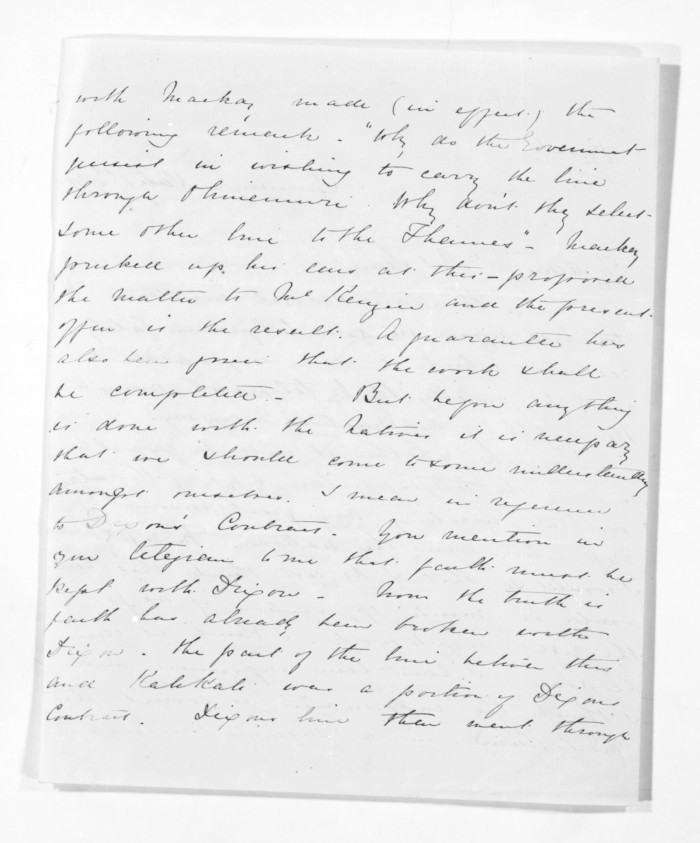 with Mackay made (in effect) the
following remark - "Why do the Government
persist in wishing to carry the line
through Ohinemuri. Why don't they select
some other line to the Thames" - Mackay
pricked up his ears at this - proposed
the matter to McKenzie and the present
offer is the result. A guarantee has
also been given that the work shall
be completed - But before anything
is done with the Natives it is necessary
that we should come to some understanding
amongst ourselves. I mean in reference
to Dixon's Contract. You mention in
your telegram to me that faith must be
kept with Dixon - Now the truth is
faith has already been broken with
Dixon. The part of the line between this
and Katikati was a portion of Dixons
Contract. Dixons line then went through